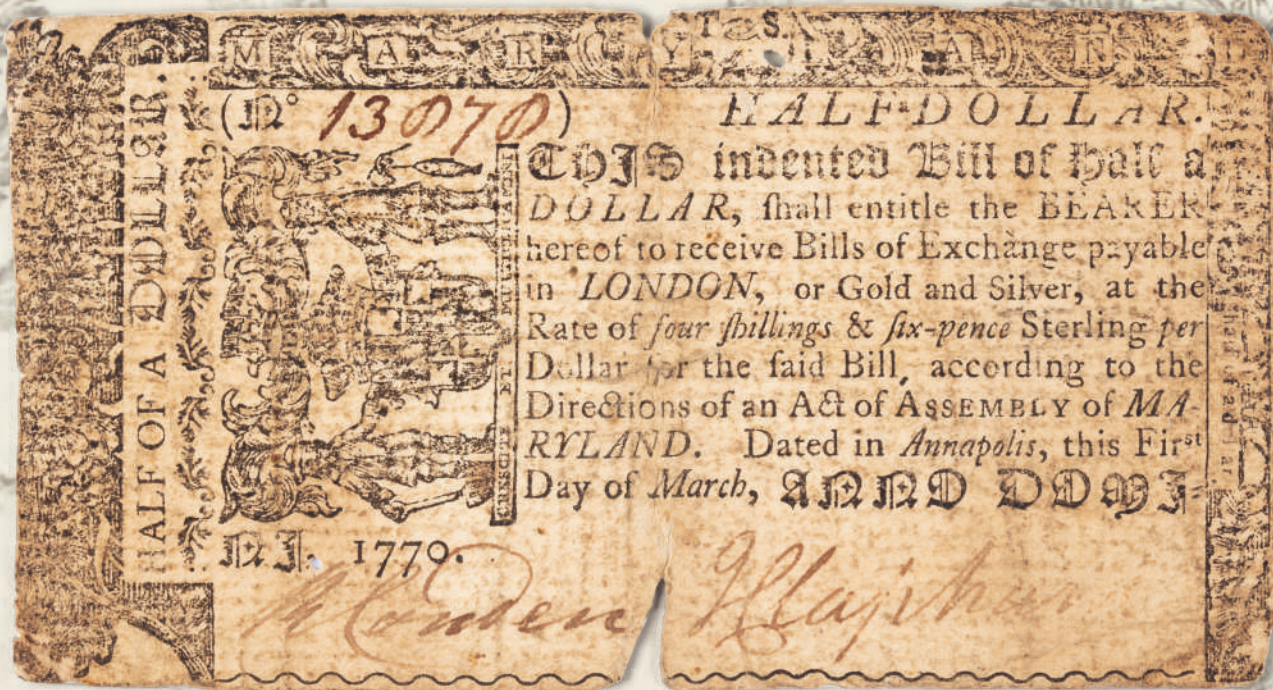 M A R Y L A N D
T. S.
HALF OF A DOLLAR.
(No 13878)
HALF-DOLLAR.
THIS indented Bill of Half a
DOLLAR, ſhall entitle the BEARER
hereof to receive Bills of Exchange payable
in LONDON, or Gold and Silver, at the
Rate of ſour ſhillings & ſix-pence Sterling per
Dollar for the ſaid Bill, according to the
Directions of an Act of ASSEMBLY of MA-
RYLAND. Dated in Annapolis, this Firſt
Day of March, ANNO DOMI-
NI. 1770.
CRESCITE ET MULTIPLICAMINI
J Clapham